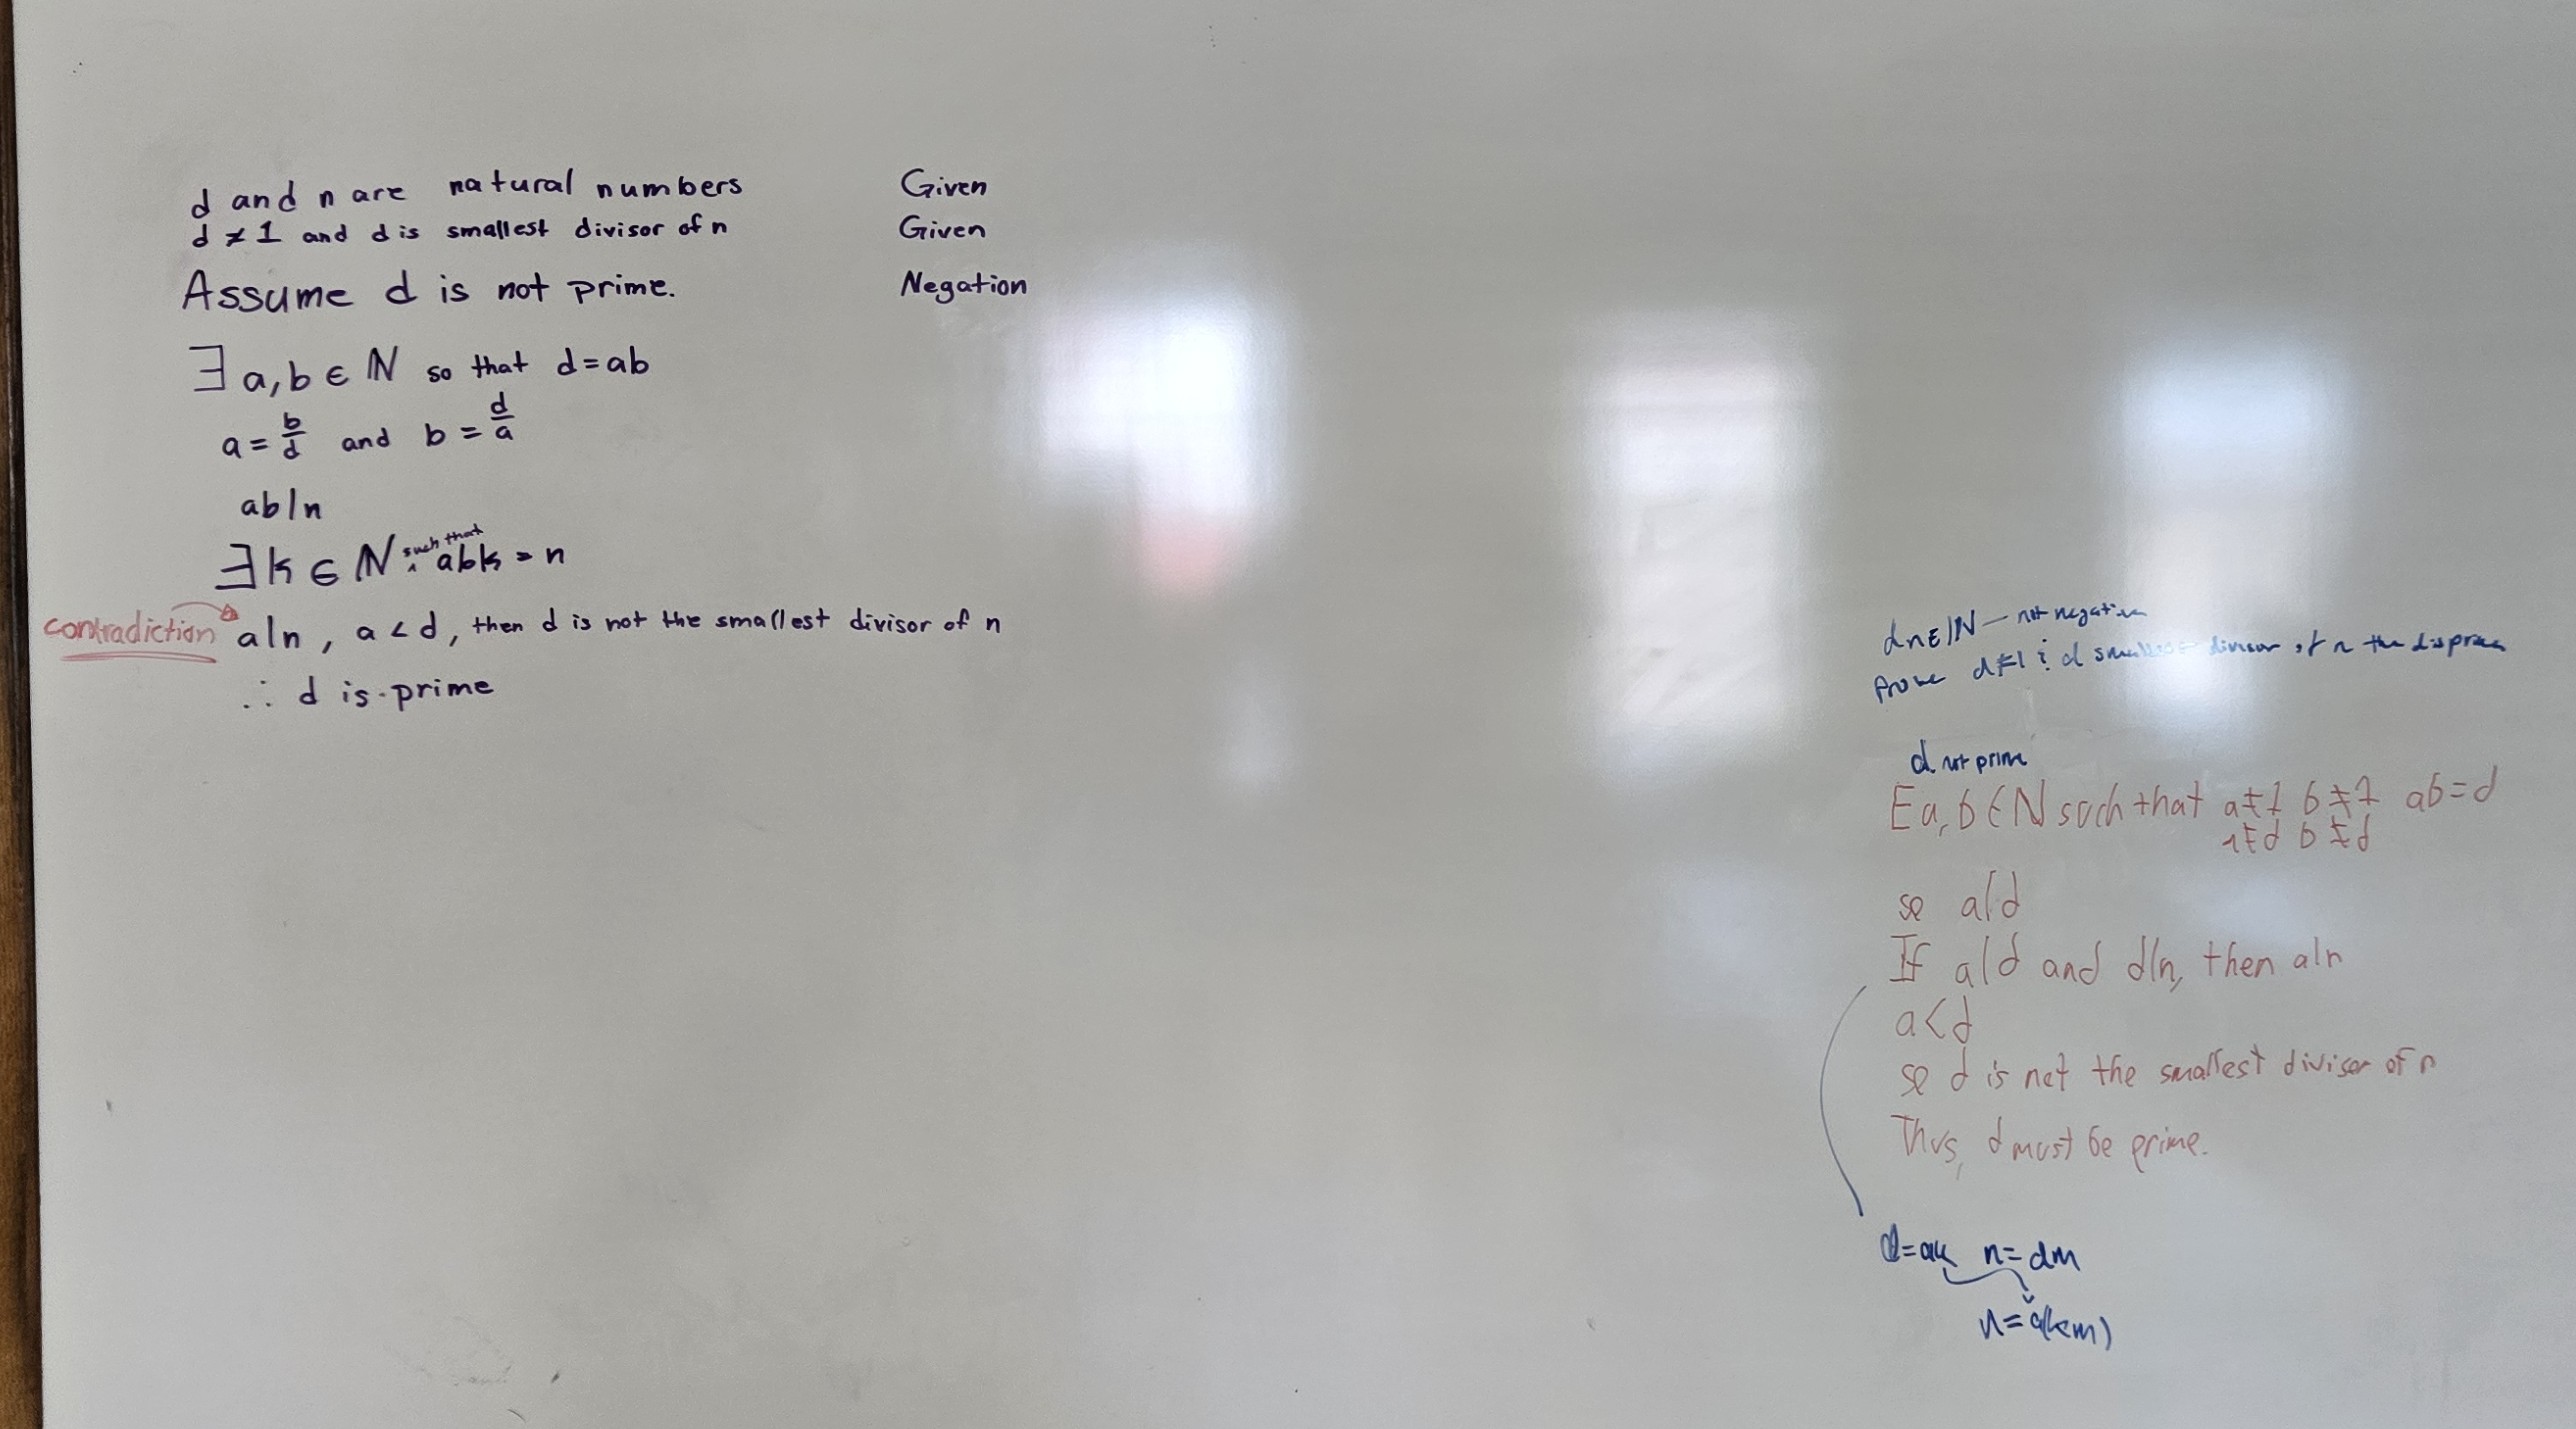 d and n are natural numbers Given
d ≠ 1 and d is smallest divisor of n Given
Assume d is not prime. Negation
∃ a, b ∈ ℕ so that d = ab
a = b/d and b = d/a
ab|n
∃ k ∈ ℕ such that abk = n
contradiction a|n, a < d, then d is not the smallest divisor of n
∴ d is prime
d n ∈ ℕ — not negative
Prove d ≠ 1 & d smallest divisor of n the d is prime
d not prime
E a, b ∈ ℕ such that a ≠ 1 b ≠ 1 ab = d
a ≠ d b ≠ d
so a|d
If a|d and d|n, then a|n
a < d
so d is not the smallest divisor of n
Thus, d must be prime.
d = ak n = dm
n = a(km)